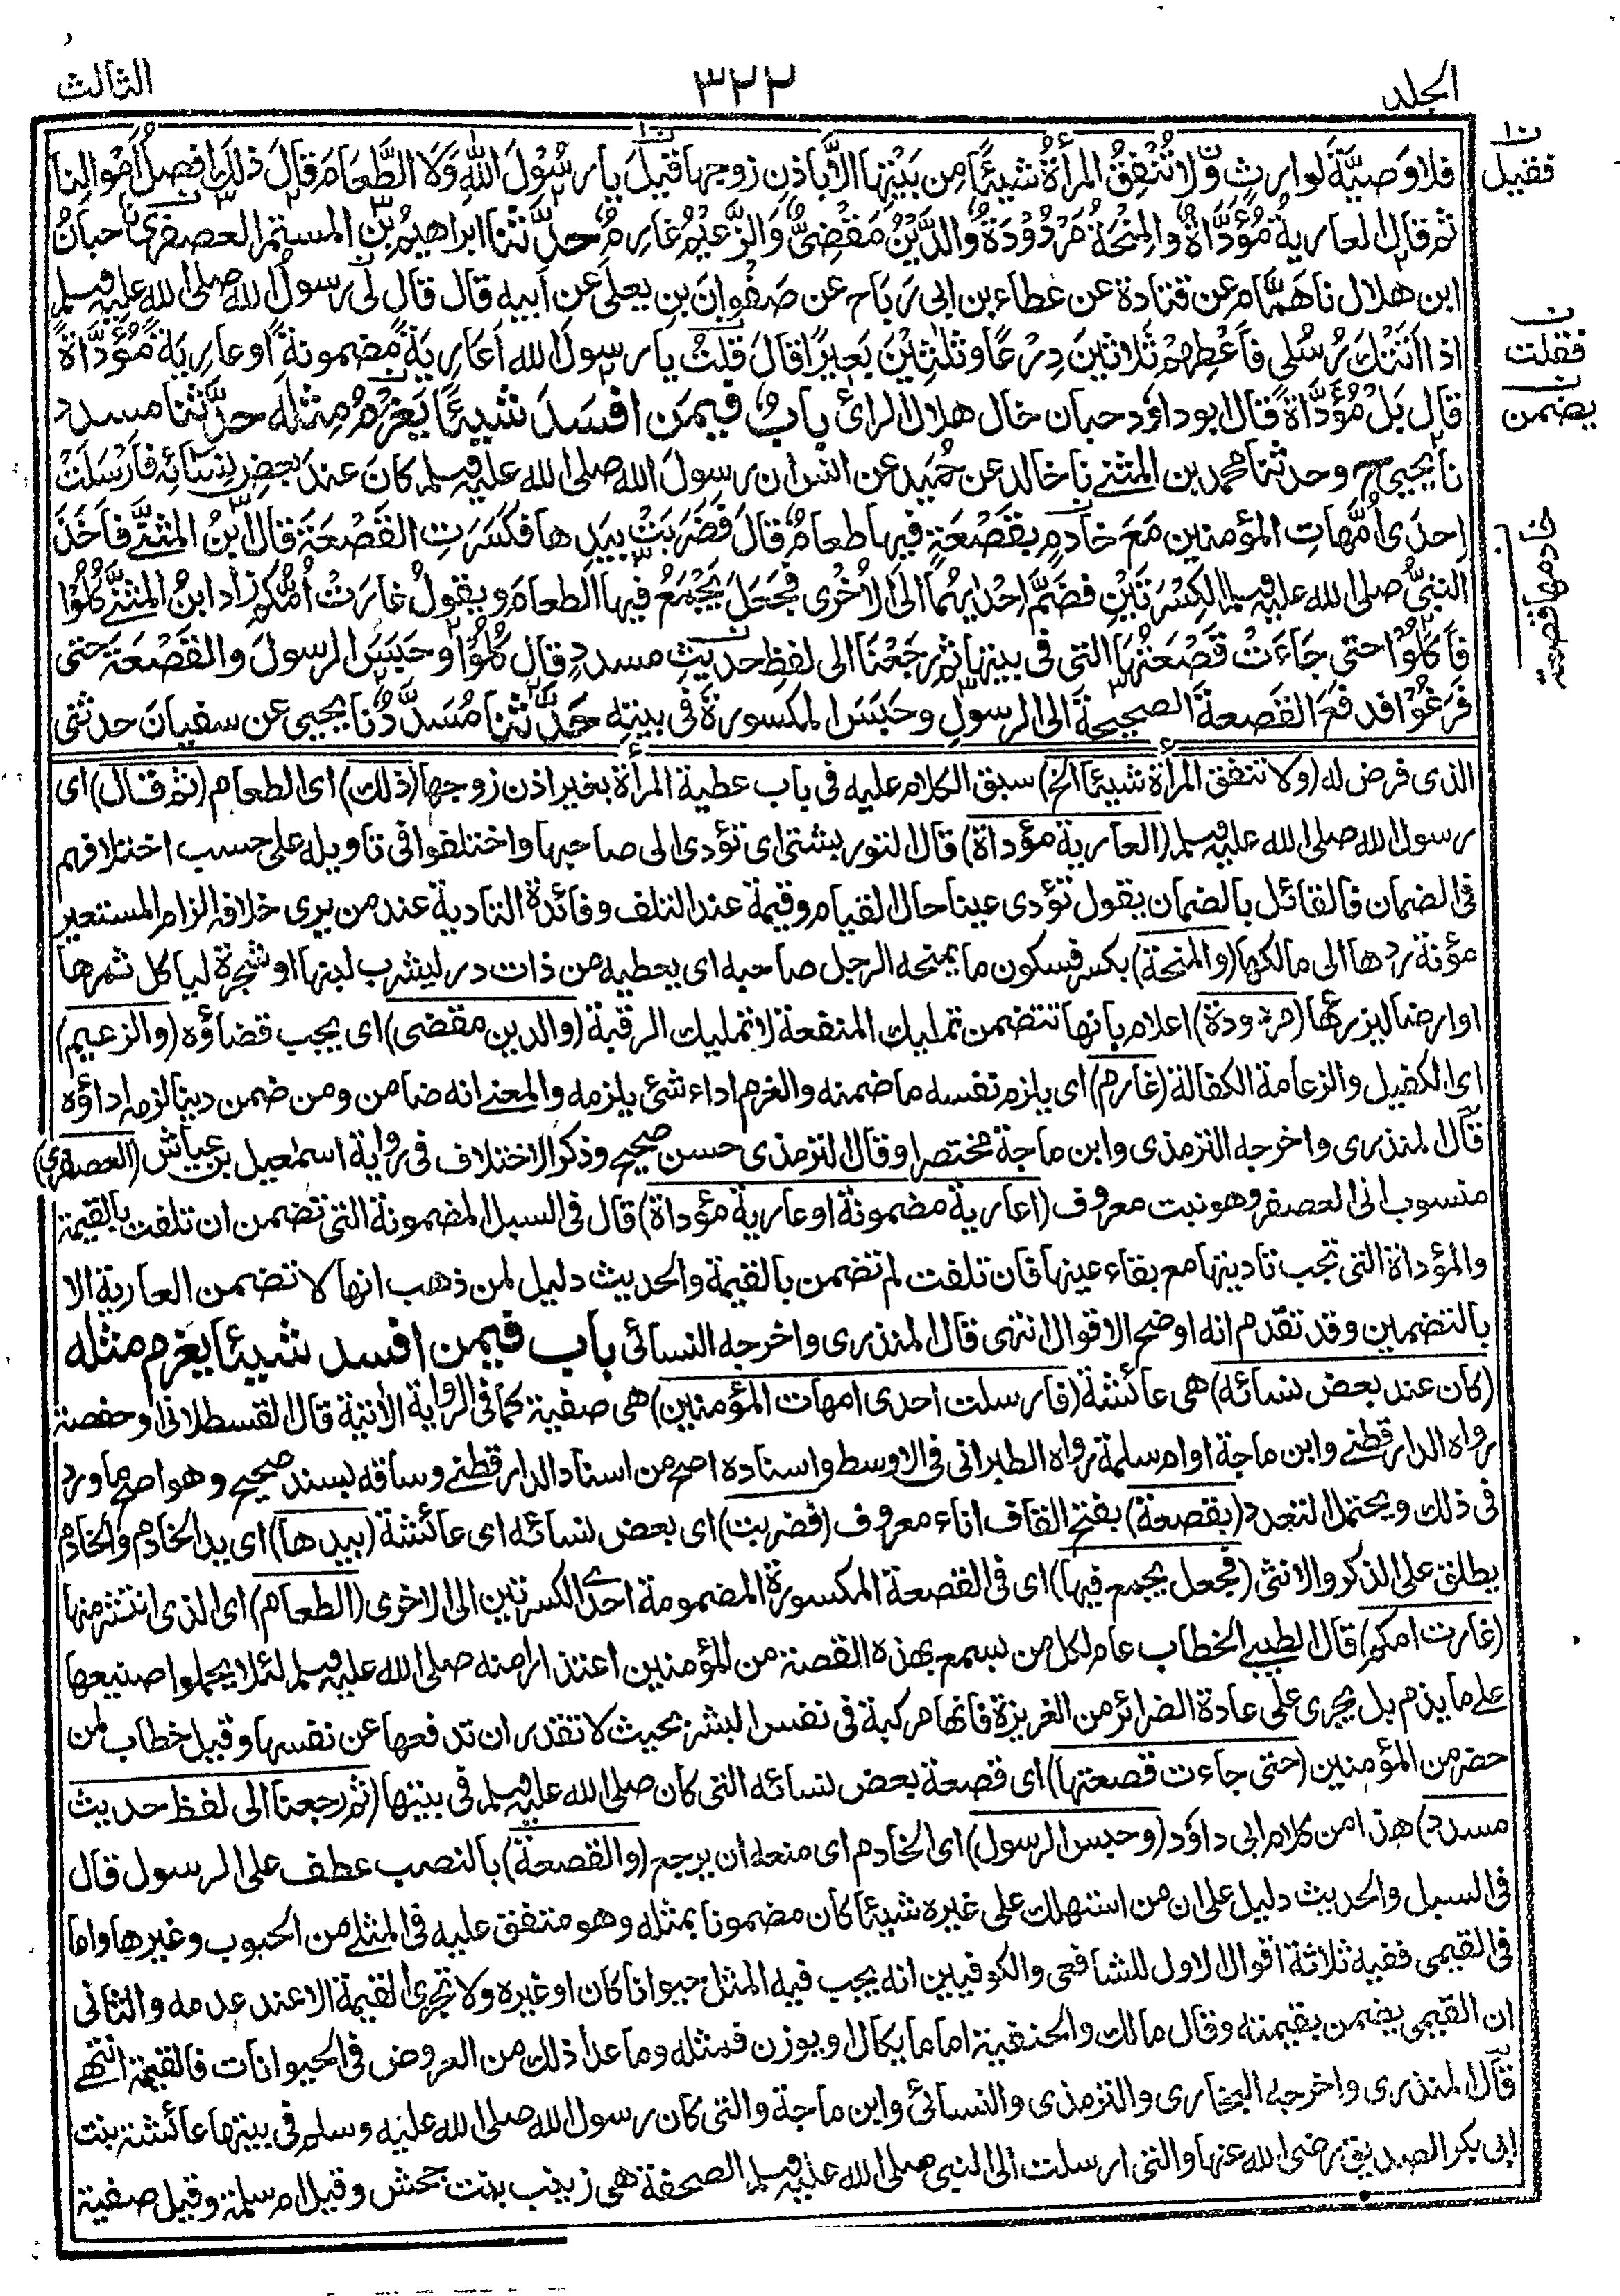 الجلد
٣٢٢
الثالث
فلا وصيَّةَ لوارثٍ وَّلا تُنْفِقُ المرأةُ شيئًا مِن بَيْتِها الَّا باذنِ زوجِها فقيلَ يا رسُوْلَ اللهِ وَلَا الطَّعامَ قالَ ذلكَ افضلُ اَمْوالِنا
ثم قال العاريةُ مُؤَدَّاةٌ والمِنْحَةُ مَرْدُوْدَةٌ والدَّيْنُ مَقْضِىٌّ وَالزَّعِيْمُ غَارِمٌ حدَّثنا ابراهيمُ بْنُ المستمر العصفرى نا حبانُ
ابن هلال نا هَمَّام عن قتادة عن عطاء بن ابى رَبَاح عن صَفْوانَ بنِ يعلى عن اَبيه قال قال لى رسولُ الله صلى الله عليه وسلم
اذا اَتَتْكَ رُسُلى فاَعْطِهِمْ ثَلاثينَ دِرْعًا وثلٰثِيْنَ بَعِيرًا قالَ قلتُ يا رسولَ الله اَعَارِيَةً مَّضمونةً او عارِيَةً مُّؤَدَّاةً
قال بَلْ مُؤَدَّاةً قال ابو داوٗد حبان خال هلال الرائ بابٌ فيمَن افسَدَ شيئًا يَغْرَمُ مِثْلَه حدَّثنا مسدد
نا يحيى ح وحدثنا محمد بن المثنى نا خالد عن حُمَيد عن انس ان رسولَ الله صلى الله عليه وسلم كانَ عندَ بعضِ نِسَائِه فاَرْسَلَتْ
اِحدَى اُمَّهاتِ المؤمنين مَعَ خادمٍ بقَصْعَةٍ فيها طعامٌ قالَ فَضَرَبَتْ بِيَدِها فكَسَرَتِ القَصْعَةَ قالَ ابْنُ المثنَّى فاَخَذَ
النبىُّ صلى الله عليه وسلم الكِسْرَتَيْنِ فضَمَّ اِحْدٰيهُما اِلَى الاُخْرٰى فجَعَلَ يَجْمَعُ فيها الطعامَ ويقولُ غارَتْ اُمُّكم زاد ابنُ المثنَّى كُلُوْا
فاَكَلُوْا حتى جَاءَتْ قَصْعَتُها التى فى بيتِها ثم رجَعْنَا الى لفظِ حديثِ مسددٍ قال كُلُوْا وحَبَسَ الرسولَ والقَصْعَةَ حتى
فَرَغُوْا فدفَعَ القَصعةَ الصحيحةَ الى الرسولِ وحَبَسَ المكسورةَ فى بيتِه حدَّثنا مُسَدَّدٌ نا يحيى عن سفيانَ حدثتنى
فقيل
فقلت
يضمن
خادمها قصعة
الذى فرض له (ولا تنفق المرأة شيئا الخ) سبق الكلام عليه فى باب عطية المرأة بغير اذن زوجها (ذلك) اى الطعام (ثم قال) اى
رسول الله صلى الله عليه وسلم (العارية مؤداة) قال التوربشتى اى تؤدى الى صاحبها واختلفوا فى تاويله على حسب اختلافهم
فى الضمان فالقائل بالضمان يقول تؤدى عينا حال القيام وقيمة عند التلف وفائدة التادية عند من يرى خلافه الزام المستعير
مؤنة ردها الى مالكها (والمنحة) بكسر فسكون ما يمنحه الرجل صاحبه اى يعطيه من ذات در ليشرب لبنها او شجرة لياكل ثمرها
او ارضا ليزرعها (مردودة) اعلام بانها تتضمن تمليك المنفعة لا تمليك الرقبة (والدين مقضى) اى يجب قضاؤه (والزعيم)
اى الكفيل والزعامة الكفالة (غارم) اى يلزم نفسه ما ضمنه والغرم اداء شئ يلزمه والمعنى انه ضامن ومن ضمن دينا لزمه اداؤه
قال المنذرى واخرجه الترمذى وابن ماجة مختصرا وقال الترمذى حسن صحيح وذكر الاختلاف فى رواية اسمعيل بن عياش (العصفرى)
منسوب الى العصفر وهو نبت معروف (اعارية مضمونة او عارية مؤداة) قال فى السبل المضمونة التى تضمن ان تلفت بالقيمة
والمؤداة التى تجب تاديتها مع بقاء عينها فان تلفت لم تضمن بالقيمة والحديث دليل لمن ذهب انها لا تضمن العارية الا
بالتضمين وقد تقدم انه اوضح الاقوال انتهى قال المنذرى واخرجه النسائى باب فيمن افسد شيئا يغرم مثله
(كان عند بعض نسائه) هى عائشة (فارسلت احدى امهات المؤمنين) هى صفية كما فى الرواية الأتية قال القسطلانى او حفصة
رواه الدارقطنى وابن ماجة او ام سلمة رواه الطبرانى فى الاوسط واسناده اصح من اسناد الدارقطنى وساقه بسند صحيح وهو اصح ما ورد
فى ذلك ويحتمل التعدد (بقصعة) بفتح القاف اناء معروف (فضربت) اى بعض نسائه اى عائشة (بيدها) اى يد الخادم والخادم
يطلق على الذكر والانثى (فجعل يجمع فيها) اى فى القصعة المكسورة المضمومة احدى الكسرتين الى الاخرى (الطعام) اى الذى انتثر منها
(غارت امكم) قال الطيبى الخطاب عام لكل من يسمع بهذه القصة من المؤمنين اعتذارا منه صلى الله عليه وسلم لئلا يحملوا صنيعها
على ما يذم بل يجرى على عادة الضرائر من الغريزة فانها مركبة فى نفس البشر بحيث لا تقدر ان تدفعها عن نفسها وقيل خطاب لمن
حضر من المؤمنين (حتى جاءت قصعتها) اى قصعة بعض نسائه التى كان صلى الله عليه وسلم فى بيتها (ثم رجعنا الى لفظ حديث
مسدد) هذا من كلام ابى داؤد (وحبس الرسول) اى الخادم اى منعه ان يرجع (والقصعة) بالنصب عطف على الرسول قال
فى السبل والحديث دليل على ان من استهلك على غيره شيئا كان مضمونا بمثله وهو متفق عليه فى المثلى من الحبوب وغيرها واما
فى القيمى ففيه ثلاثة اقوال الاول للشافعى والكوفيين انه يجب فيه المثل حيوانا كان او غيره ولا تجزى القيمة الا عند عدمه والثانى
ان القيمى يضمن بقيمته وقال مالك والحنفية اما ما يكال او يوزن فمثله وما عدا ذلك من العروض فى الحيوانات فالقيمة انتهى
قال المنذرى واخرجه البخارى والترمذى والنسائى وابن ماجة والتى كان رسول الله صلى الله عليه وسلم فى بيتها عائشة بنت
ابى بكر الصديق رضى الله عنها والتى ارسلت الى النبى صلى الله عليه وسلم الصحفة هى زينب بنت جحش وقيل ام سلمة وقيل صفية